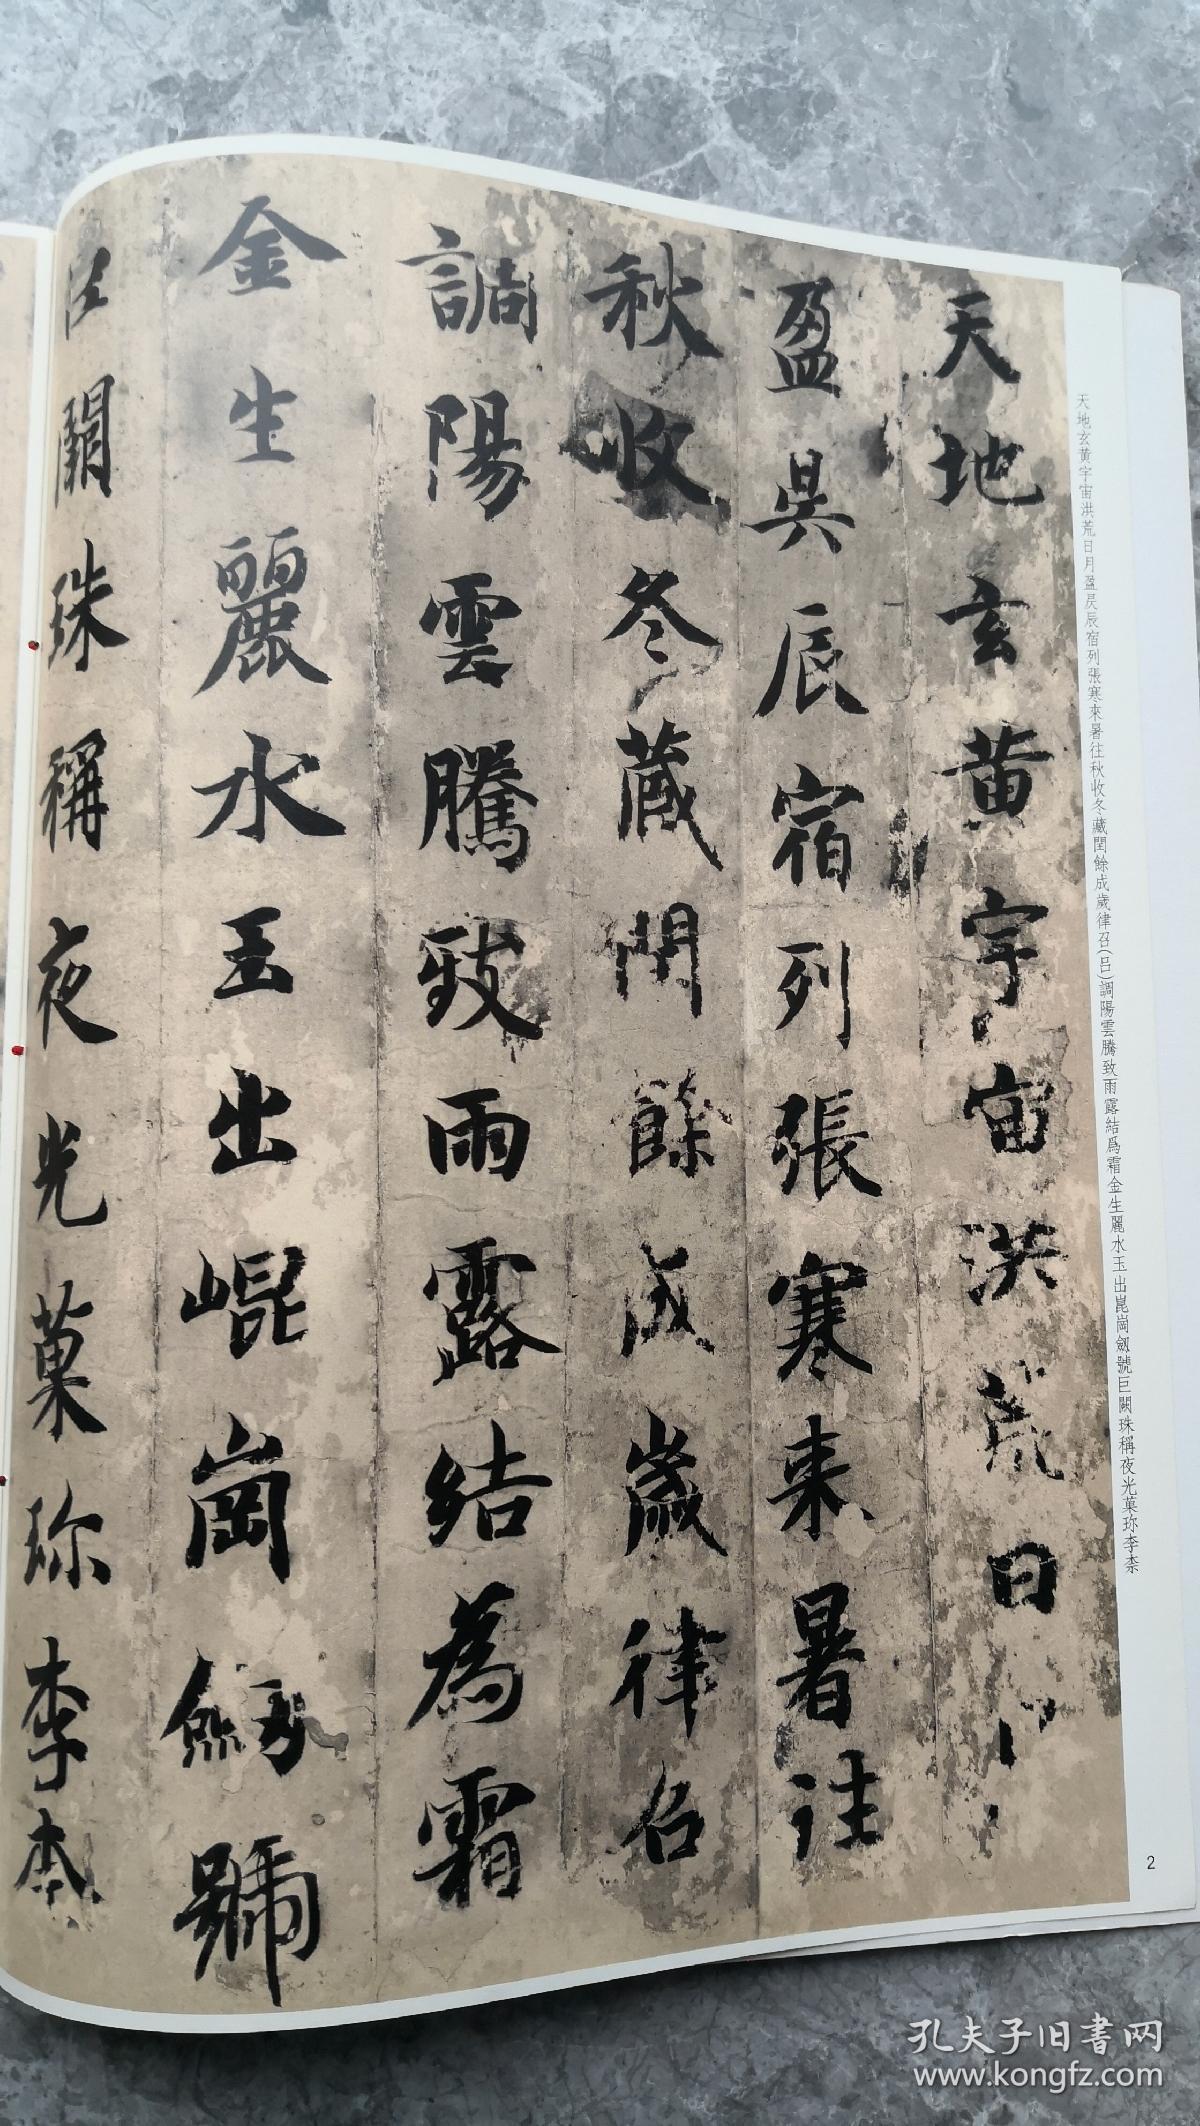 天地玄黄宇宙洪荒日
盈昃辰宿列張寒来暑往
秋收冬蔵閏餘成歲律召
調陽雲騰致雨露結為霜
金生麗水玉出崐崗劒號
巨闕珠稱夜光菓珎李柰
天地玄黄宇宙洪荒日月盈昃辰宿列張寒來暑往秋收冬藏閏餘成歲律召(吕)調陽雲騰致雨露結爲霜金生麗水玉出崑崗劒號巨闕珠稱夜光菓珎李柰
2
孔夫子旧書网
www.kongfz.com